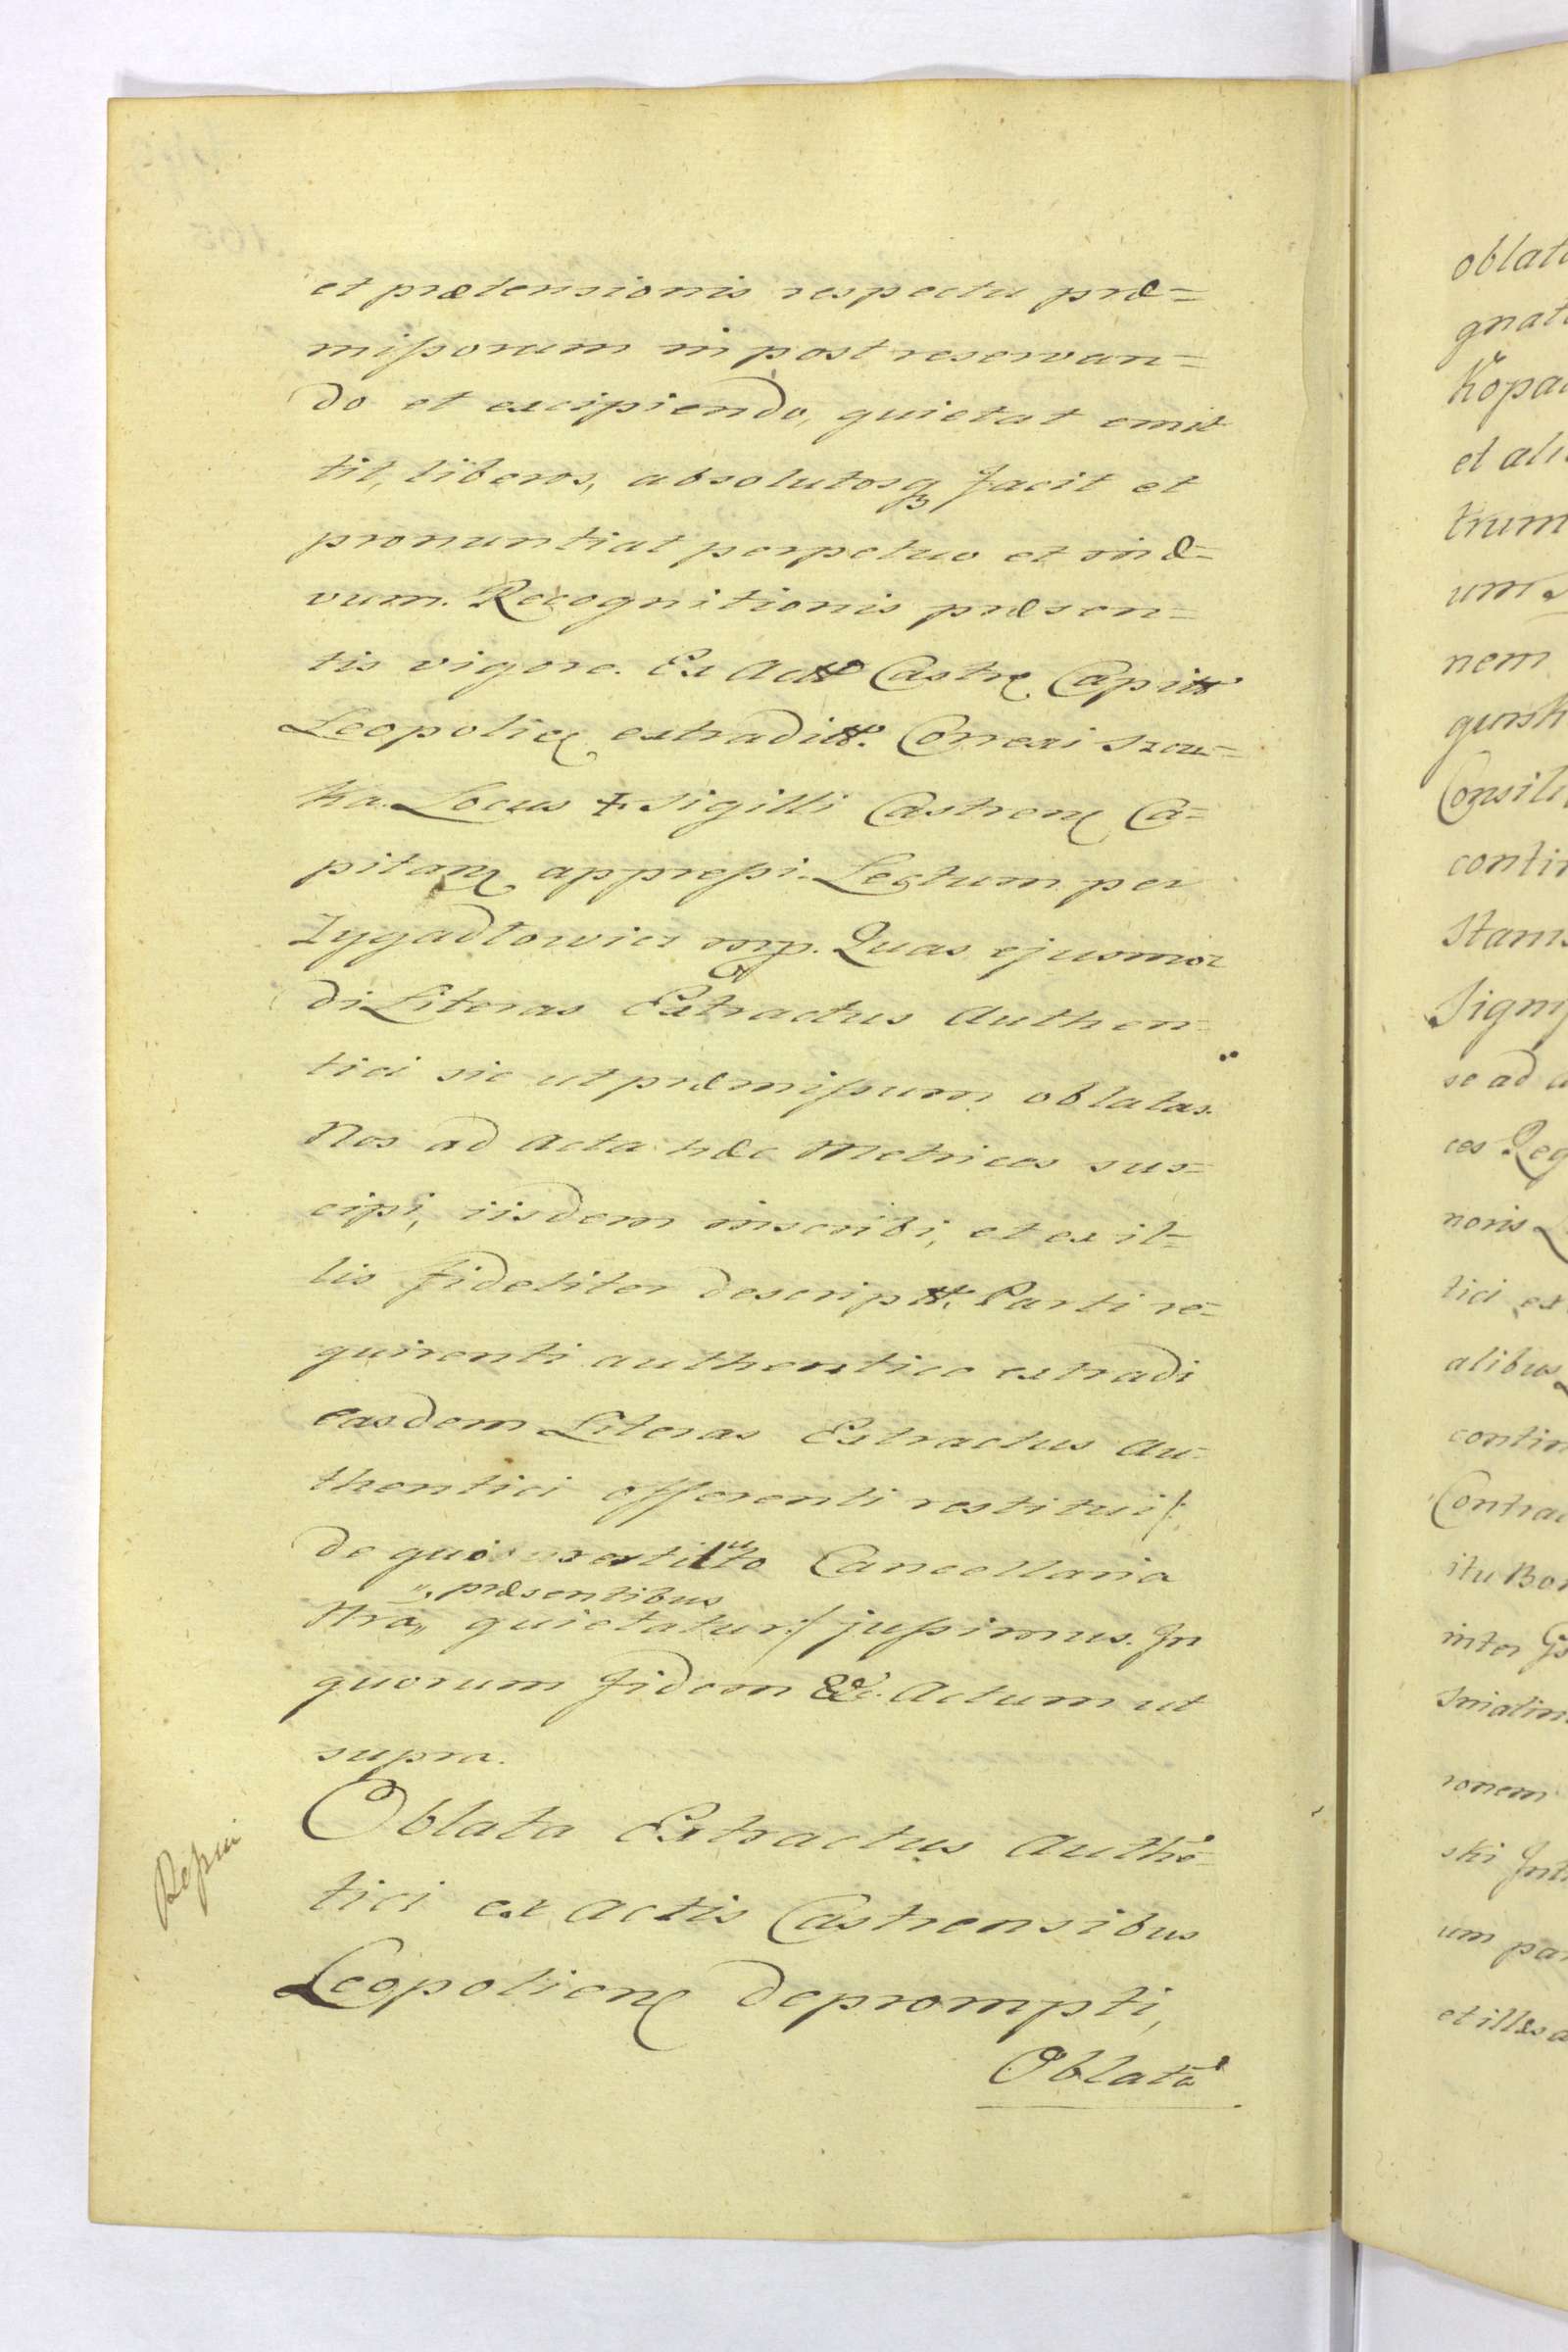 et prætensionis respectu præ=
missorum in post reservan=
do et excipiendo, quietat emit
tit, liberos, absolutosq₃ facit et
pronuntiat perpetuo et in æ=
vum. Recognitionis præsen=
tis vigore. Ex Actt Castr. Capitt
Leopoliẽ extraditt. Correxi Szcu=
ka. Locus ‡ Sigilli Castren. Ca=
pitan. appressi. Lectum per
Zygadłowicz mp. Quas ejusmo=
di Literas Extractus Authen=
tici sic ut præmissum oblatas.
Nos ad Acta hæc Metrices sus=
cipi, iisdem inscribi, et ex il=
lis fideliter descriptt. Parti re=
quirenti authentice extradi
easdem Literas Extractus Au=
thentici offerenti restitui /:
de quibus restituto Cancellaria
„ præsentibus
Nra „ quietatur :/ jussimus. In
quorum fidem &c. Actum ut
supra.
Oblata Extractus Authē=
tici ex Actis Castrensibus
Leopolien. deprompti,
Oblatā
oblat
gnat
Kopa
et ali
trum
um
nem
Consili
conti
Stani
Signi
se ad
ces Reg
noris
tici ex
alibus
contin
Contrac
itu Bo
inter
ronem
ski
um pa
et illas